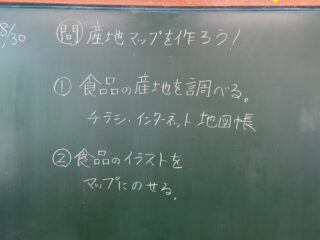 8/30
問 産地マップを作ろう!
① 食品の産地を調べる。
チラシ・インターネット 地図帳
② 食品のイラストを
マップにのせる。